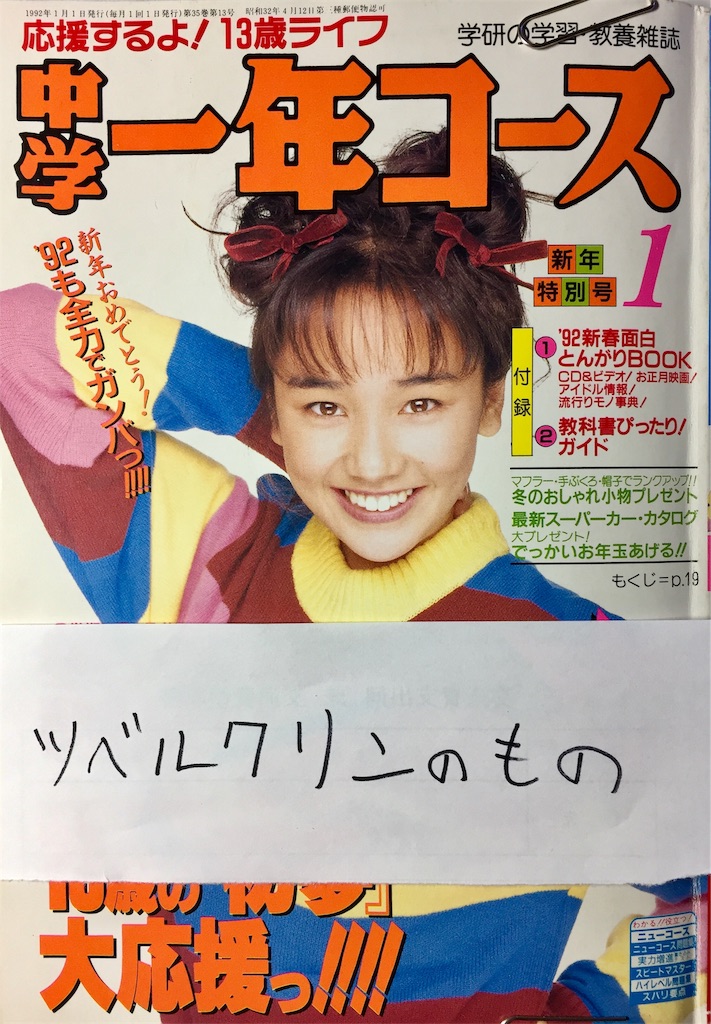 1992年1月1日発行(毎月1回1日発行)第35巻第13号 昭和32年4月12日第三種郵便物認可
応援するよ!13歳ライフ
学研の学習・教養雑誌
中学一年コース
新年おめでとう!
'92も全力でガンバっ!!!!
新年
特別号
1
付録
1 '92新春面白
とんがりBOOK
CD&ビデオ!お正月映画!
アイドル情報!
流行りモノ事典!
2 教科書ぴったり!
ガイド
マフラー・手ぶくろ・帽子でランクアップ!!
冬のおしゃれ小物プレゼント
最新スーパーカー・カタログ
大プレゼント!
でっかいお年玉あげる!!
もくじ=p.19
ツベルクリンのもの
大応援っ!!!!
わかる!!役立つ!
ニューコース
ニューコース問題集
実力増進
スピートマスター
ハイレベル問題集
ズバリ要点